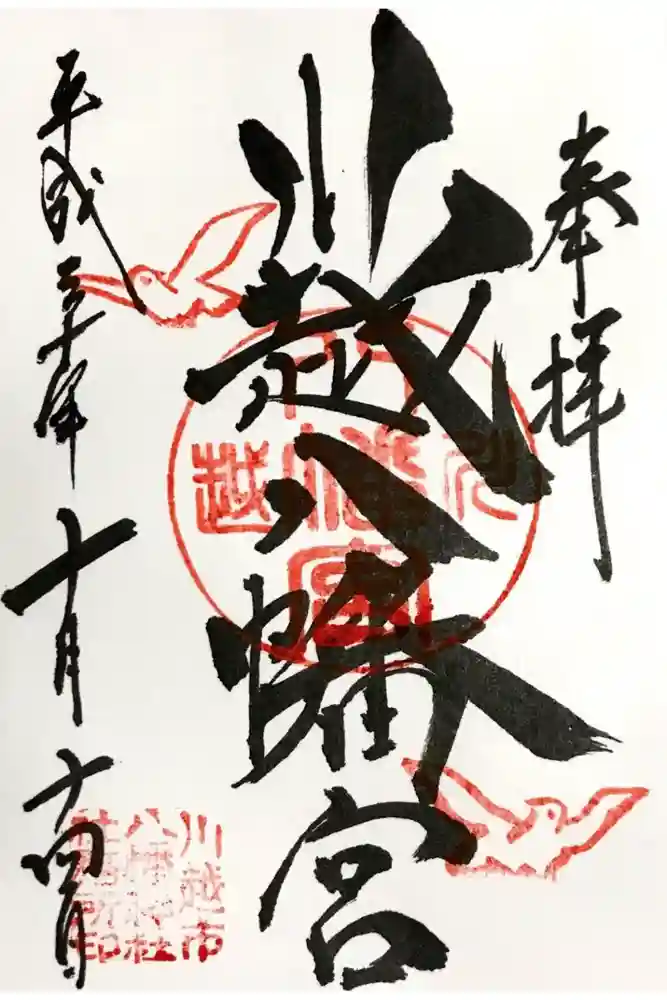 奉拝
川越八幡宮
平成三十年十月十四日
川越
八幡宮
川越市
八幡神社
社務所印